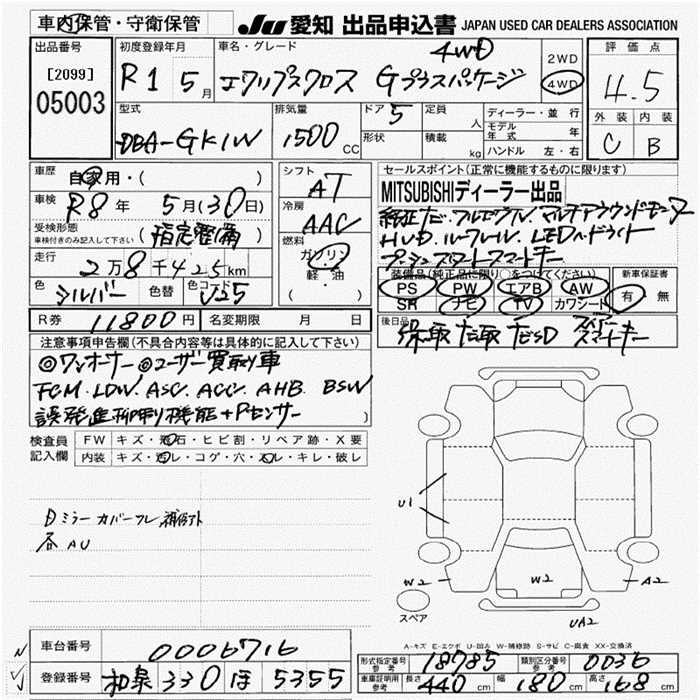 車内保管・守衛保管 JU 愛知 出品申込書 JAPAN USED CAR DEALERS ASSOCIATION
出品番号 初度登録年月 車名・グレード 4WD 2WD 評価点
[2099] R1 5月 エクリプスクロス Gプラスパッケージ 4WD 4.5
05003
型式 排気量 ドア 5 定員 人 ディーラー・並行 外装 内装
DBA-GK1W 1500 CC 形状 積載 kg モデル年式 年 C B
ハンドル 左・右
車歴 自家用・( ) シフト AT セールスポイント(正常に機能するものに限ります)
車検 R8年 5月(30日) 冷房 AAC MITSUBISHIディーラー出品
受検形態 車検付きのみ記入して下さい (指定整備) 燃料 ガソリン 純正ナビ フルセグTV マルチアラウンドモニター
走行 2万8千425km 軽・油 HUD ルーフレール LEDヘッドライト
色 シルバー 色替 色コード U25 ( ) プッシュスタートスマートキー
装備品(純正品に限り○をつけてください) 新車保証書
PS PW エアB AW 有・無
SR ナビ TV カワシート
R券 11800円 名変期限 月 日 後日品 保取 ナ取 ナビSD スペアースマートキー
注意事項申告欄(不具合内容等は具体的に記入して下さい)
◎ワンオーナー ◎ユーザー買取り車
FCM. LDW. ASC. ACC. AHB. BSW
誤発進抑制機能+Pセンサー )
検査員記入欄 FW キズ・飛石・ヒビ割・リペア跡・X要
内装 キズ・汚レ・コゲ・穴・スレ・キレ・破レ
U1
日ミラーカバーワレ
各AU
W2 W2 A2
スペア UA2
A-キズ E-エクボ U-凹み W-補修跡 S-サビ C-腐食 XX-交換済
車台番号 0006716
登録番号 和泉 330 ほ 5355
形式指定番号 参考 18785 類別区分番号 参考 0036
車庫証明用 参考 長さ 440 cm 幅 180 cm 高さ 168 cm